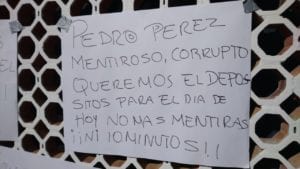 PEDRO PEREZ
MENTIROSO, CORRUPTO
QUEREMOS EL DEPO
SITOS PARA EL DIA DE
HOY NO MAS MENTIRAS
¡¡NI 10 MINUTOS!!